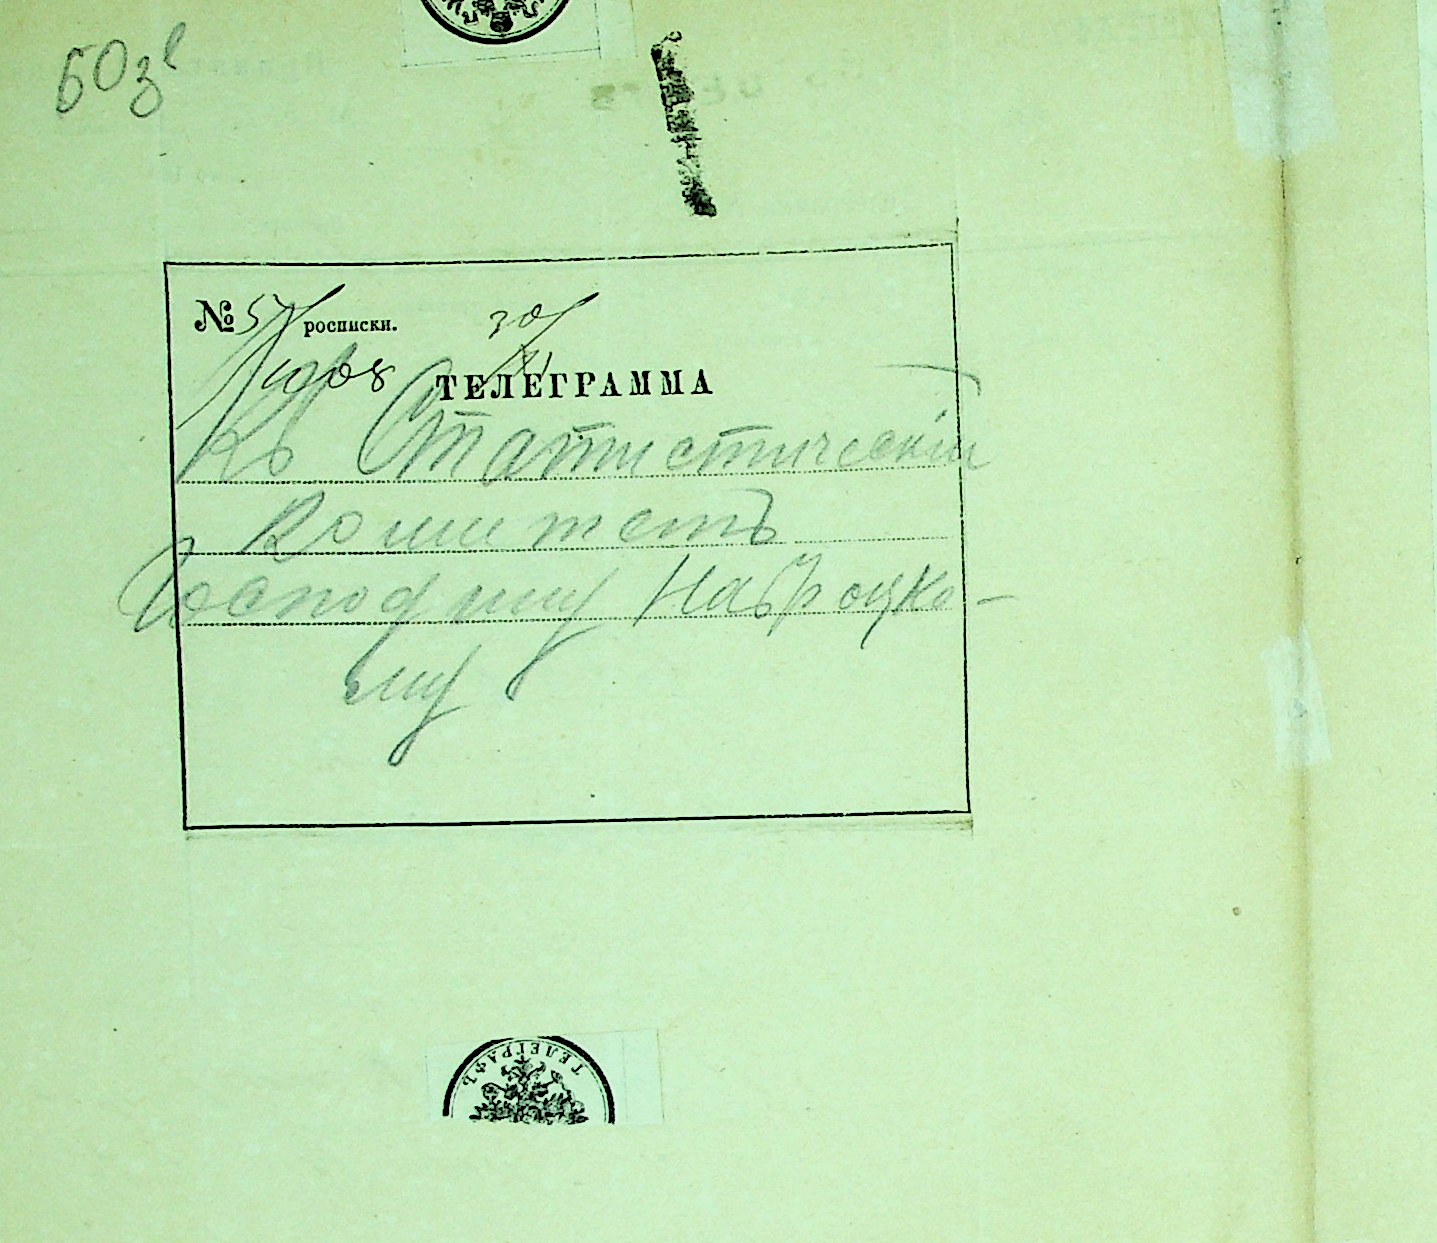 503
№ 57 росписки.
30/XI
ТЕЛЕГРАММА
Къ Статистическій
Комитетъ
Господину Навроцко-
му
ТЕЛЕГРАФЪ